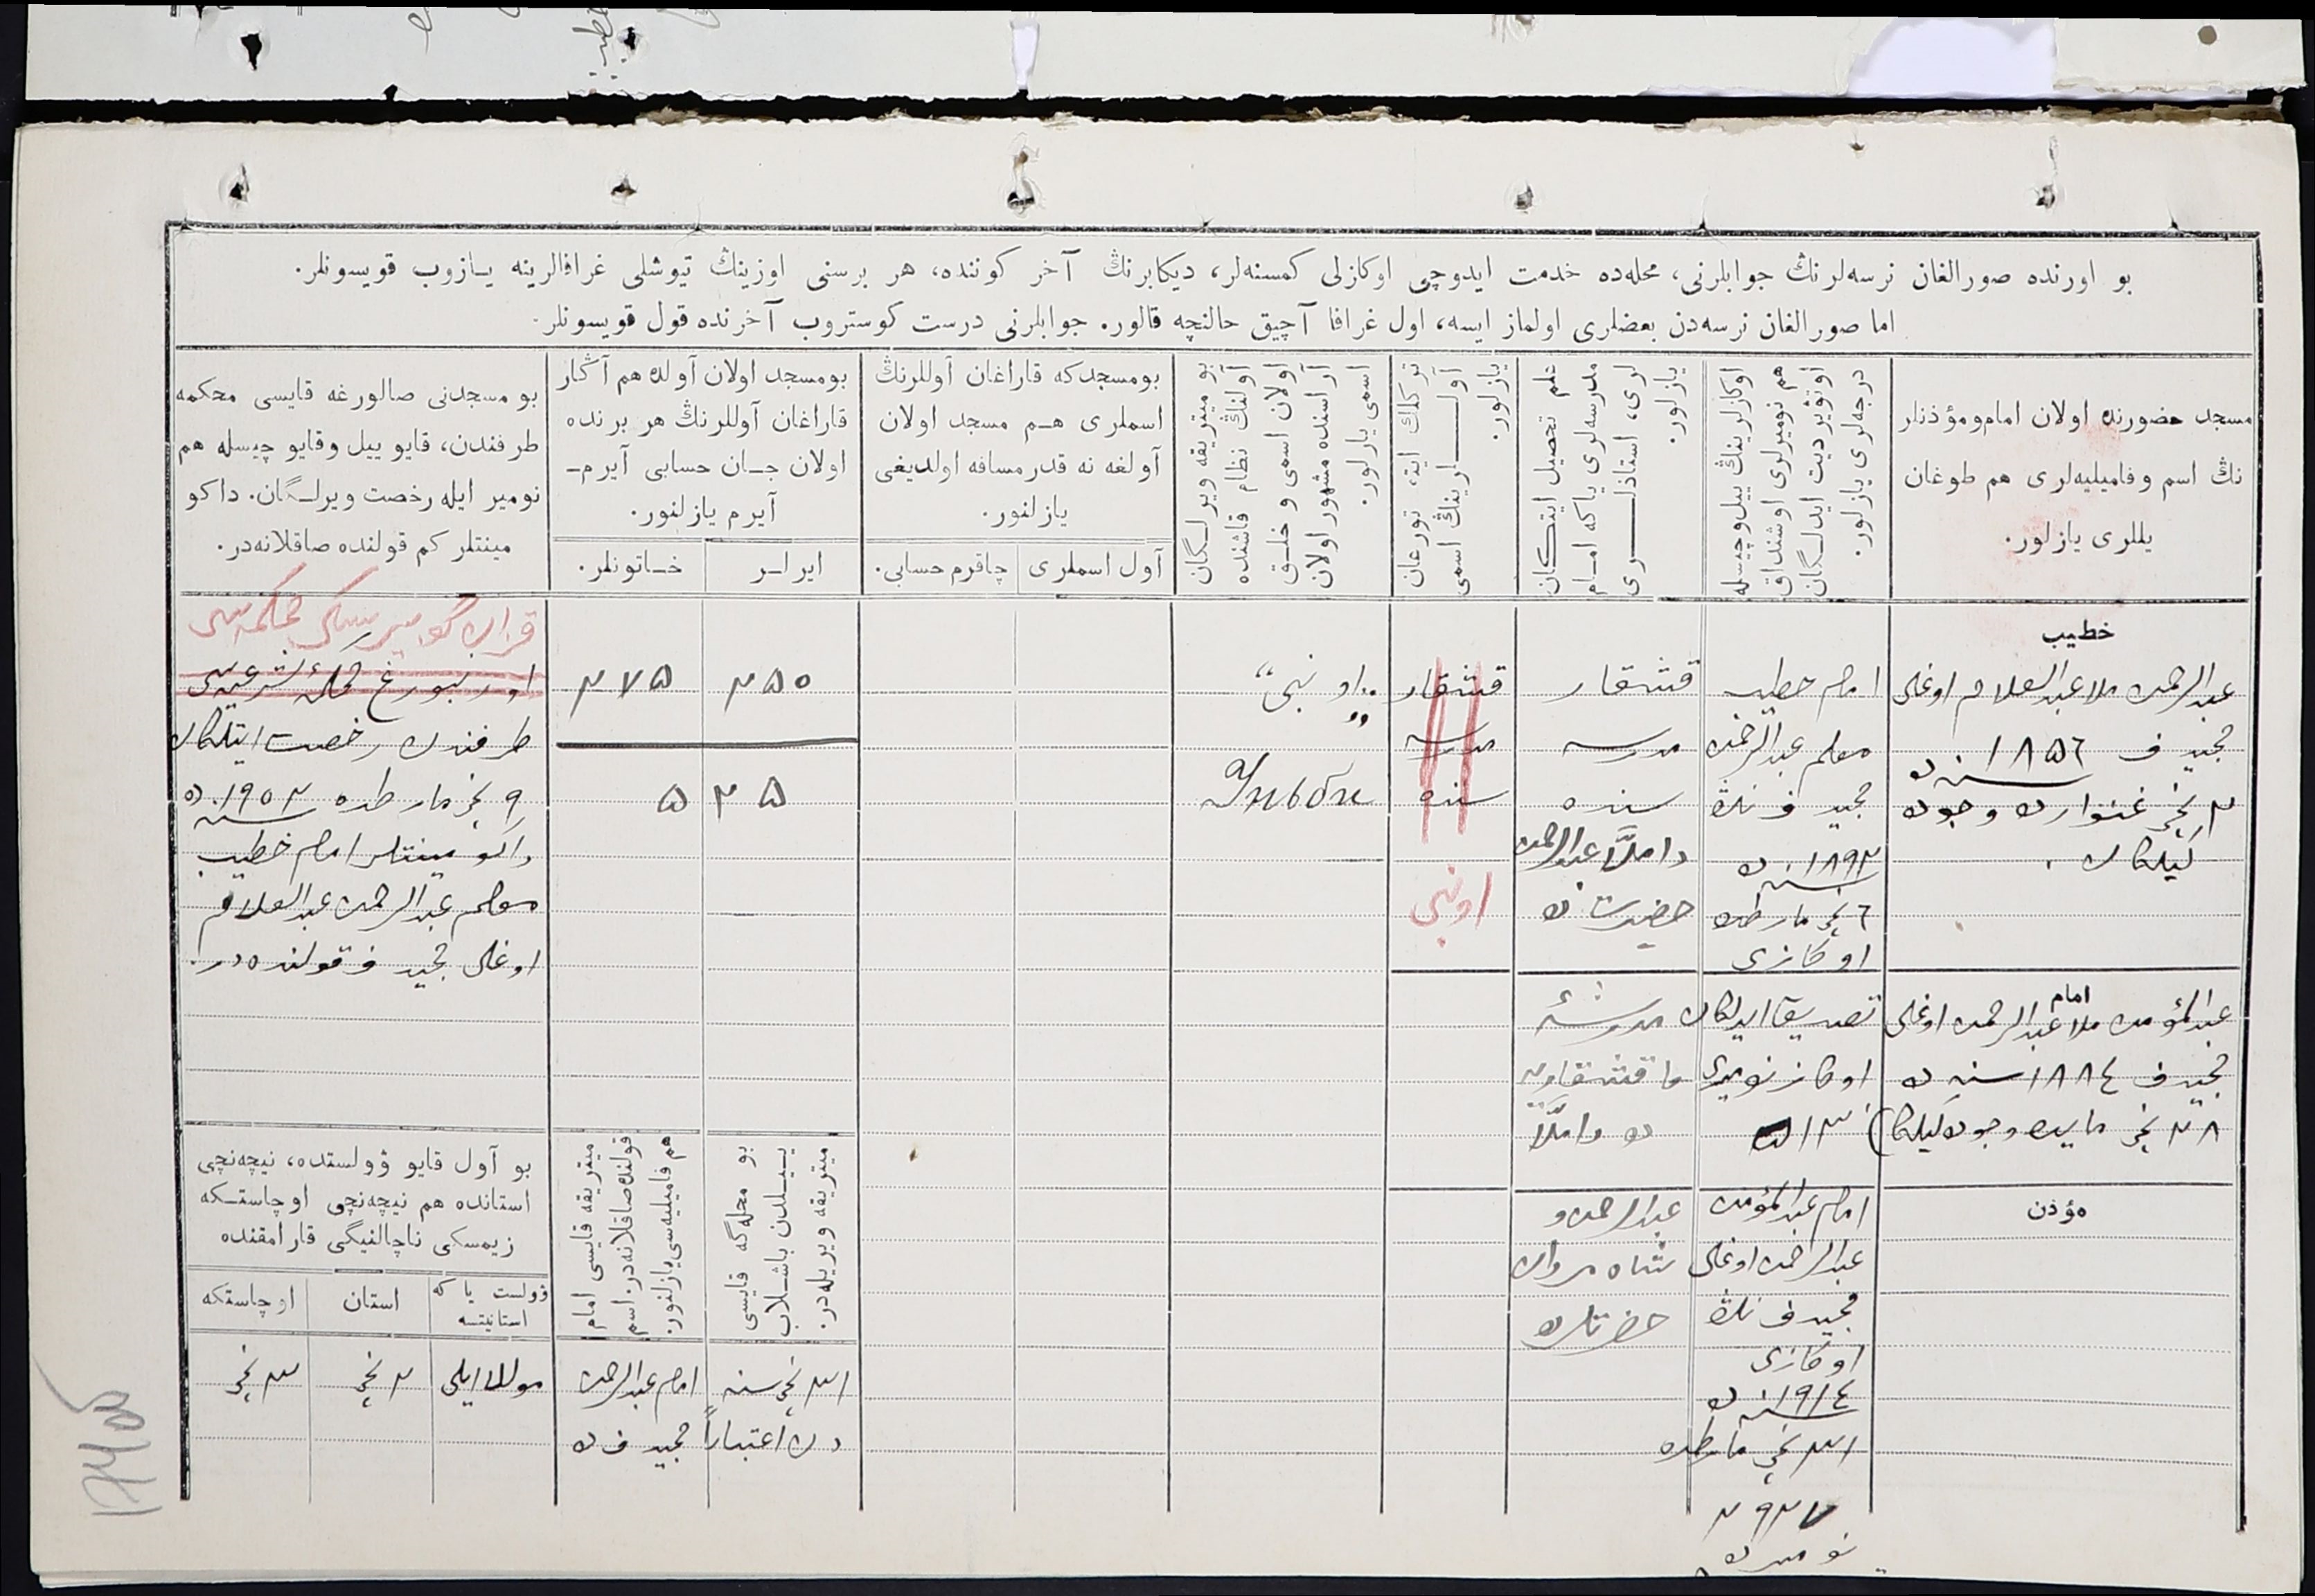 بو اورنده صورالغان نرسه‌لرنڭ جوابلرنی، محله‌ده خدمت ایدوچی اوکازلی کمسنه‌لر، دیکابرنڭ آخر کوننده، هر برسنی اوزینڭ تیوشلی غرافالرینه یازوب قویسونلر.
اما صورالغان نرسه‌دن بعضلری اولماز ایسه، اول غرافا آچیق حالنچه قالور. جوابلرنی درست کوستروب آخرنده قول قویسونلر.
مسجد حضورنده اولان امام ومؤذنلر
نڭ اسم وفامیلیه‌لری هم طوغان
یللری یازلور.
اوکازلرینڭ ییل وچیسله
هم نومیرلری اوشنداق
اوتوێردیت ایدلگان
درجه‌لری یازلور.
علم تحصیل ایتکان
مدرسه‌لری یاکه امام
لری، استاذلری
یازلور.
ترکلک ایته تورغان
آوللرینڭ اسمی
یازلور.
بو میتریقه ویرلگان
آولنڭ نظام قاشنده
اولان اسمی و خلق
آراسنده مشهور اولان
اسمی یازلور.
بومسجدکه قاراغان آوللرنڭ
اسملری هم مسجد اولان
آولغه نه قدر مسافه اولدیغی
یازلنور.
آول اسملری
چاقرم حسابی.
بومسجد اولان آولده هم آڭار
قاراغان آوللرنڭ هر برنده
اولان جان حسابی آیرم-
آیرم یازلنور.
ایرلر
خاتونلر.
بو مسجدنی صالورغه قایسی محکمه
طرفندن، قایو ییل وقایو چیسله هم
نومیر ایله رخصت ویرلگان. داکو
مینتلر کم قولنده صاقلانه‌در.
خطیب
عبدالرحمن ملا عبدالعلام اوغلی
مجیدف ١٨٥٦ سنه‌ده
٢ نچی غنوارده وجوده
کیلکان.
امام خطیب
معلم عبدالرحمن
مجیدف نڭ
١٨٩٢ سنه‌ده
٦ نچی مارطده
اوکازی
قشقار
مدرسه
سنده
داملا عبدالرحمن
حضرت‌ده
قشقار
مدرسه
سنده
اونبی
„اونبی“
Унъби
٢٥٠
٢٧٥
٥٢٥
محکمه‌سی
اورنبورغ محکمهٔ شرعیه‌سی
طرفندن رخصت ایتلکان
٩ نچی مارطده ١٩٠٢ سنه‌ده
داکومینتلر امام خطیب
معلم عبدالرحمن عبدالعلام
اوغلی مجیدف قولنده‌در.
امام
عبدالمؤمن ملا عبدالرحمن اوغلی
مجیدف ١٨٨٤ سنه‌ده
٢٨ نچی مایده وجوده کیلکان
تصدیق ایدلکان
اوکاز نومیری
امام عبدالمؤمن
عبدالرحمن اوغلی
مجیدف نڭ
اوکازی
١٩١٤ سنه‌ده
١٣ نچی مارطده
٢٩٢٧
نومیرده
مدرسهٔ
داملا
عبدالرحمن و
شاه مردان
حضرتلرده
مؤذن
بو محله‌گه قایسی
ییلدن باشلاب
میتریقه ویریله‌در.
میتریقه قایسی امام
قولنده صاقلانه‌در: اسم
هم فامیلیه‌سی یازلنور.
بو آول قایو ۋولستده، نیچه‌نچی
استانده هم نیچه‌نچی اوچاستکه
زیمسکی ناچالنیگی قارامقنده
ۋولست یا که
استانیتسه
استان
اوچاستکه
١٣ نچی سنه
دن اعتبارا
امام عبدالرحمن
مجیدف ده
موللا ایلی
٢ نچی
٣ نچی